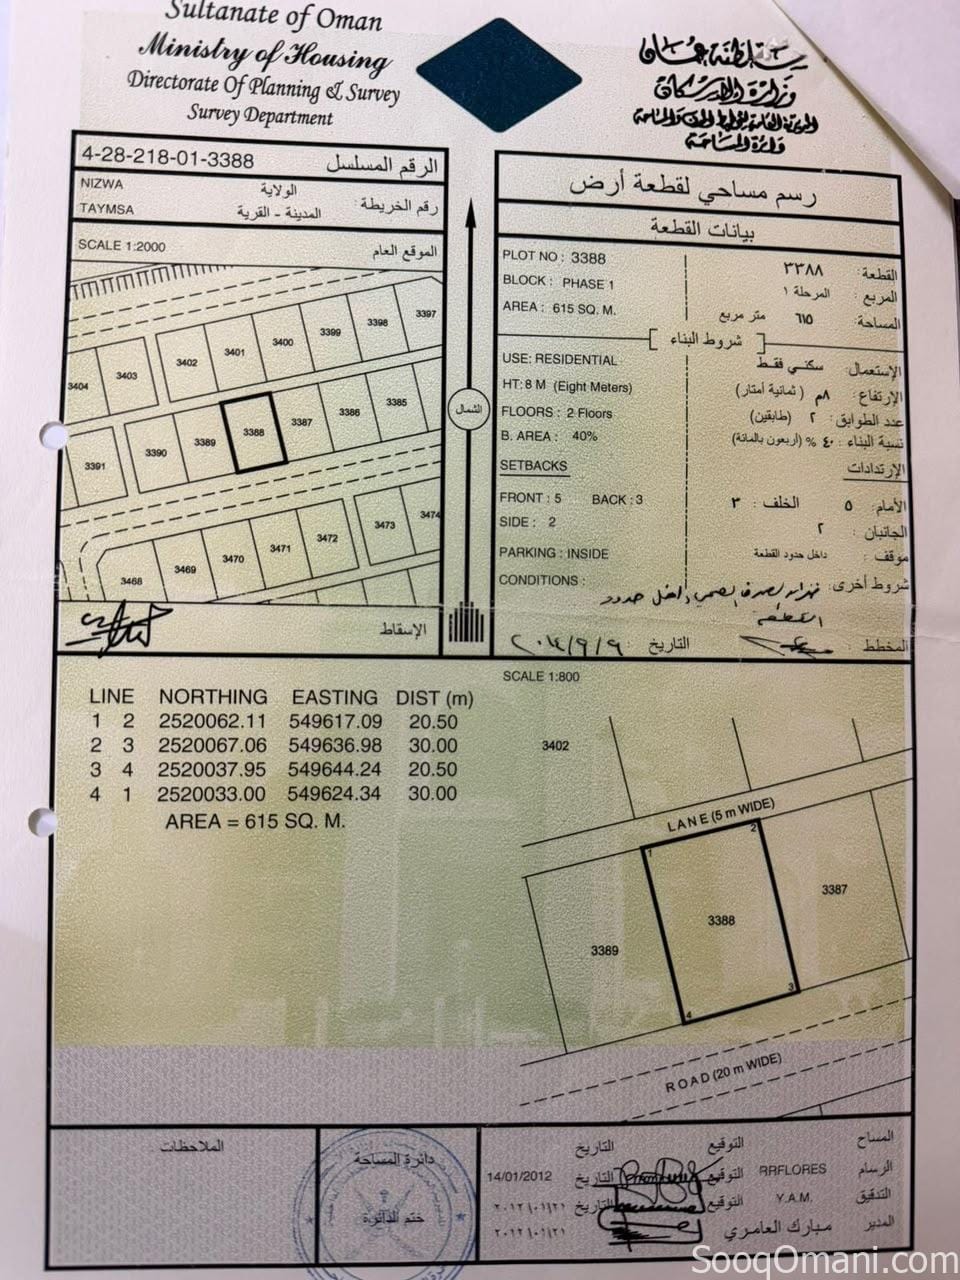 Sultanate of Oman
Ministry of Housing
Directorate Of Planning & Survey
Survey Department
سلطنة عمان
وزارة الإسكان
المديرية العامة للتخطيط والمساحة
دائرة المساحة
4-28-218-01-3388 الرقم المسلسل
NIZWA الولاية
رقم الخريطة :
TAYMSA المدينة - القرية
SCALE 1:2000 الموقع العام
3397
3398
3399
3400
3401
3402
3403
3404
3385
3386
3387
3388
3389
3390
3391
3474
3473
3472
3471
3470
3469
3468
الإسقاط
الشمال
رسم مساحي لقطعة أرض
بيانات القطعة
PLOT NO : 3388 القطعة : ٣٣٨٨
BLOCK : PHASE 1 المربع : المرحلة ١
AREA : 615 SQ. M. المساحة: ٦١٥ متر مربع
شروط البناء
USE: RESIDENTIAL الإستعمال: سكني فقط
HT: 8 M (Eight Meters) الإرتفاع : ٨م ( ثمانية أمتار)
FLOORS : 2 Floors عدد الطوابق : ٢ (طابقين)
B. AREA : 40% نسبة البناء : ٤٠ % (أربعون بالمائة)
SETBACKS الإرتدادات
FRONT : 5 BACK : 3 الأمام: ٥ الخلف : ٣
SIDE : 2 الجانبان : ٢
PARKING : INSIDE موقف : داخل حدود القطعة
CONDITIONS : شروط أخرى:
الصرف الصحي داخل حدود
القطعة
المخطط : التاريخ : ٢٠١٤/٩/٩
SCALE 1:800
LINE NORTHING EASTING DIST (m)
1 2 2520062.11 549617.09 20.50
2 3 2520067.06 549636.98 30.00
3 4 2520037.95 549644.24 20.50
4 1 2520033.00 549624.34 30.00
AREA = 615 SQ. M.
3402
LANE (5 m WIDE)
1
2
3387
3388
3389
3
4
ROAD (20 m WIDE)
الملاحظات :
دائرة المساحة
ختم الدائرة
المساح التوقيع التاريخ
الرسام RRFLORES التوقيع التاريخ 14/01/2012
التدقيق Y.A.M. التوقيع التاريخ ٢٠١٢/٠١/٢١
المدير مبارك العامري ٢٠١٢/٠١/٢١
SooqOmani.com